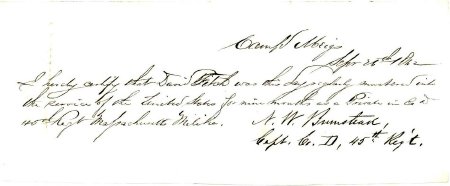 Camp Meigs
Sept 26th 1862
I hereby certify that David Fitch was this day mustered into
the service of the United States for nine months as a Private in Co D
45th Regt Massachusetts Militia.
N. W. Bumstead,
Capt. Co. D, 45th Reg't.